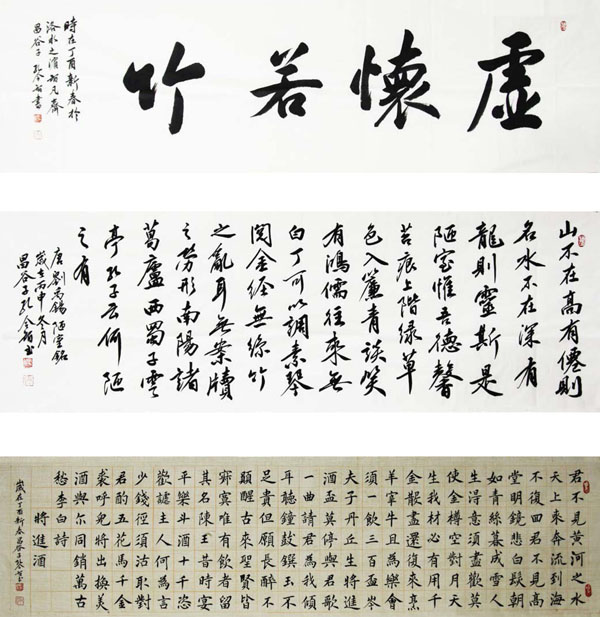 虛懷若竹
時在丁酉新春於
洛水之濱
昌谷子孔令智書
山不在高有僊則
名水不在深有
龍則靈斯是
陋室惟吾德馨
苔痕上階緑草
色入簾青談笑
有鴻儒往來無
白丁可以調素琴
閱金經無絲竹
之亂耳無案牘
之勞形南陽諸
葛廬西蜀子雲
亭孔子云何陋
之有
唐劉禹錫陋室銘
歲在丙申冬月
昌谷子孔令智書
君不見黃河之水
天上來奔流到海
不復回君不見高
堂明鏡悲白髮朝
如青絲暮成雪人
生得意須盡歡莫
使金樽空對月天
生我材必有用千
金散盡還復來烹
羊宰牛且為樂會
須一飲三百盃岑
夫子丹丘生將進
酒盃莫停與君歌
一曲請君為我傾
耳聽鐘鼓饌玉不
足貴但願長醉不
願醒古來聖賢皆
寂寞唯有飲者留
其名陳王昔時宴
平樂斗酒十千恣
歡謔主人何為言
少錢徑須沽取對
君酌五花馬千金
裘呼兒將出換美
酒與尔同銷萬古
愁李白詩
將進酒
歲在丁酉新春昌谷子